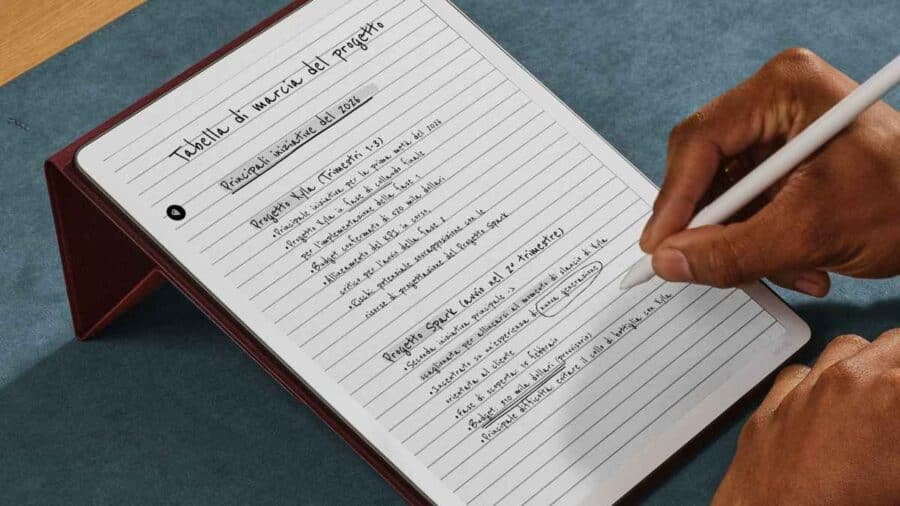 Tabella di marcia del progetto
Principali iniziative del 2026
Progetto Kyla (Trimestri 1-3)
•Principale iniziativa per la prima metà del 2026
•Progetto Kyla in fase di collaudo finale
per l'implementazione della fase 1
•Budget confermato di 520 mila dollari
•Allineamento dei KPI in corso,
critico per l'avvio della fase 2
•Rischi: potenziale sovrapposizione con le
risorse di progettazione del Progetto Spark
Progetto Spark (avvio nel 2° trimestre)
•Seconda iniziativa principale ->
scaglionata per allinearsi al momento di slancio di Kyla
•Incentrato su un'esperienza di nuova generazione
orientata al cliente
•Fase di scoperta: 15 febbraio
•Budget: 310 mila dollari (provvisorio)
•Principale difficoltà: evitare il collo di bottiglia con Kyla